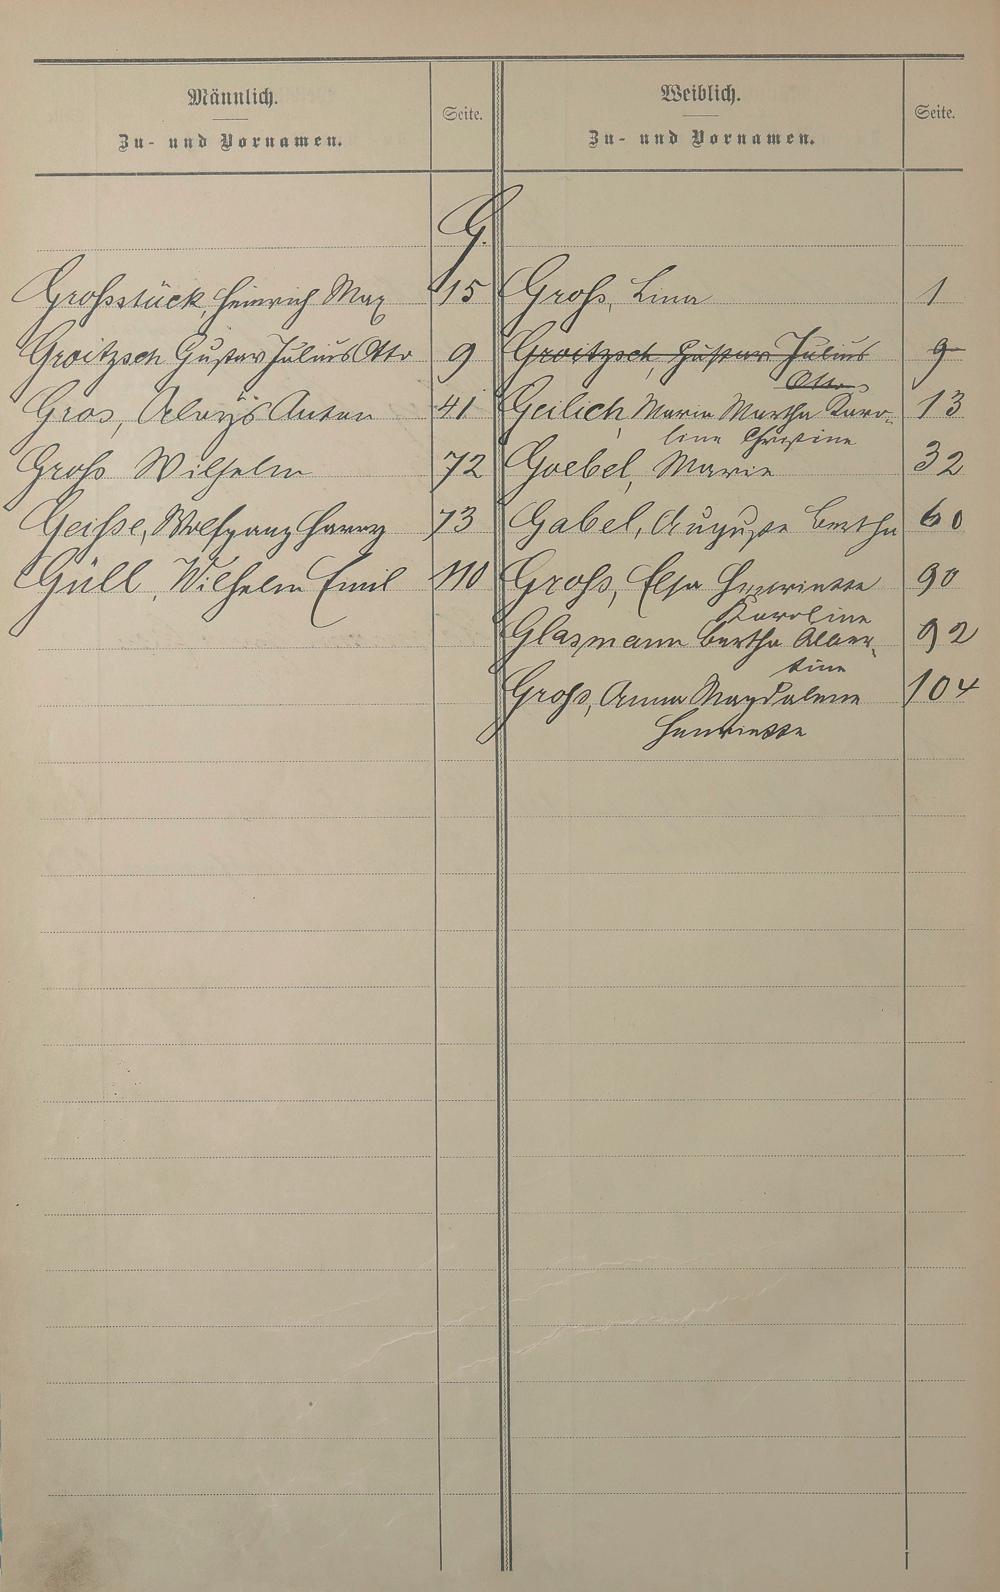 Männlich.
Zu- und Vornamen.
Seite.
Weiblich.
Zu- und Vornamen.
Seite.
G.
Großstück, Heinrich Max 15
Groitzsch Gustav Julius Otto 9
Gros, Aloÿs Anton 41
Groß Wilhelm 72
Geiße, Wolfgang Harry 73
Güll, Wilhelm Emil 110
Groß, Lina 1
Groitzsch, Gustav Julius 9
Otto
Geilich, Marie Martha Karo- 13
line Christine
Goebel, Marie 32
Gabel, Auguste Bertha 60
Groß, Elsa Henriette 90
Karoline
Glasmann Bertha Alber- 92
tine
Groß, Anna Magdalene 104
Henriette